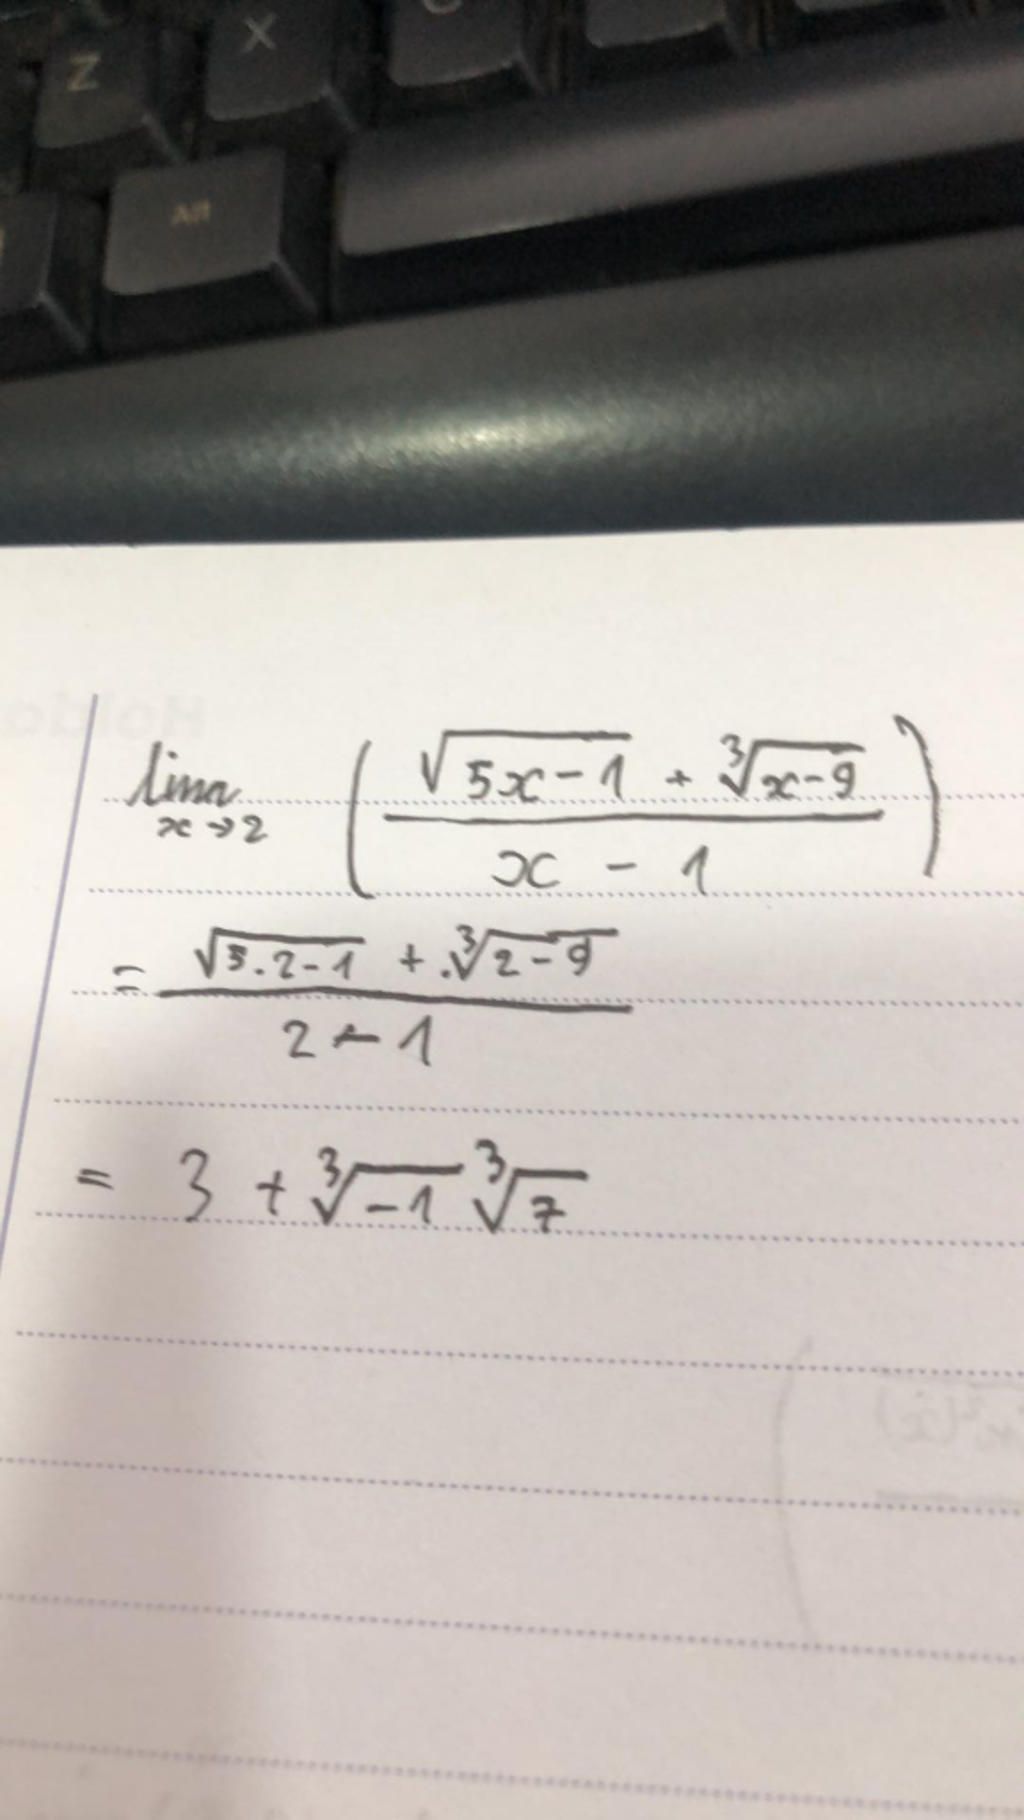 Z X C
Alt
lim x→2 ( (√(5x-1) + ∛(x-9)) / (x - 1) )
= (√(5.2-1) + .∛(2-9)) / (2 - 1)
= 3 + ∛(-1) ∛7